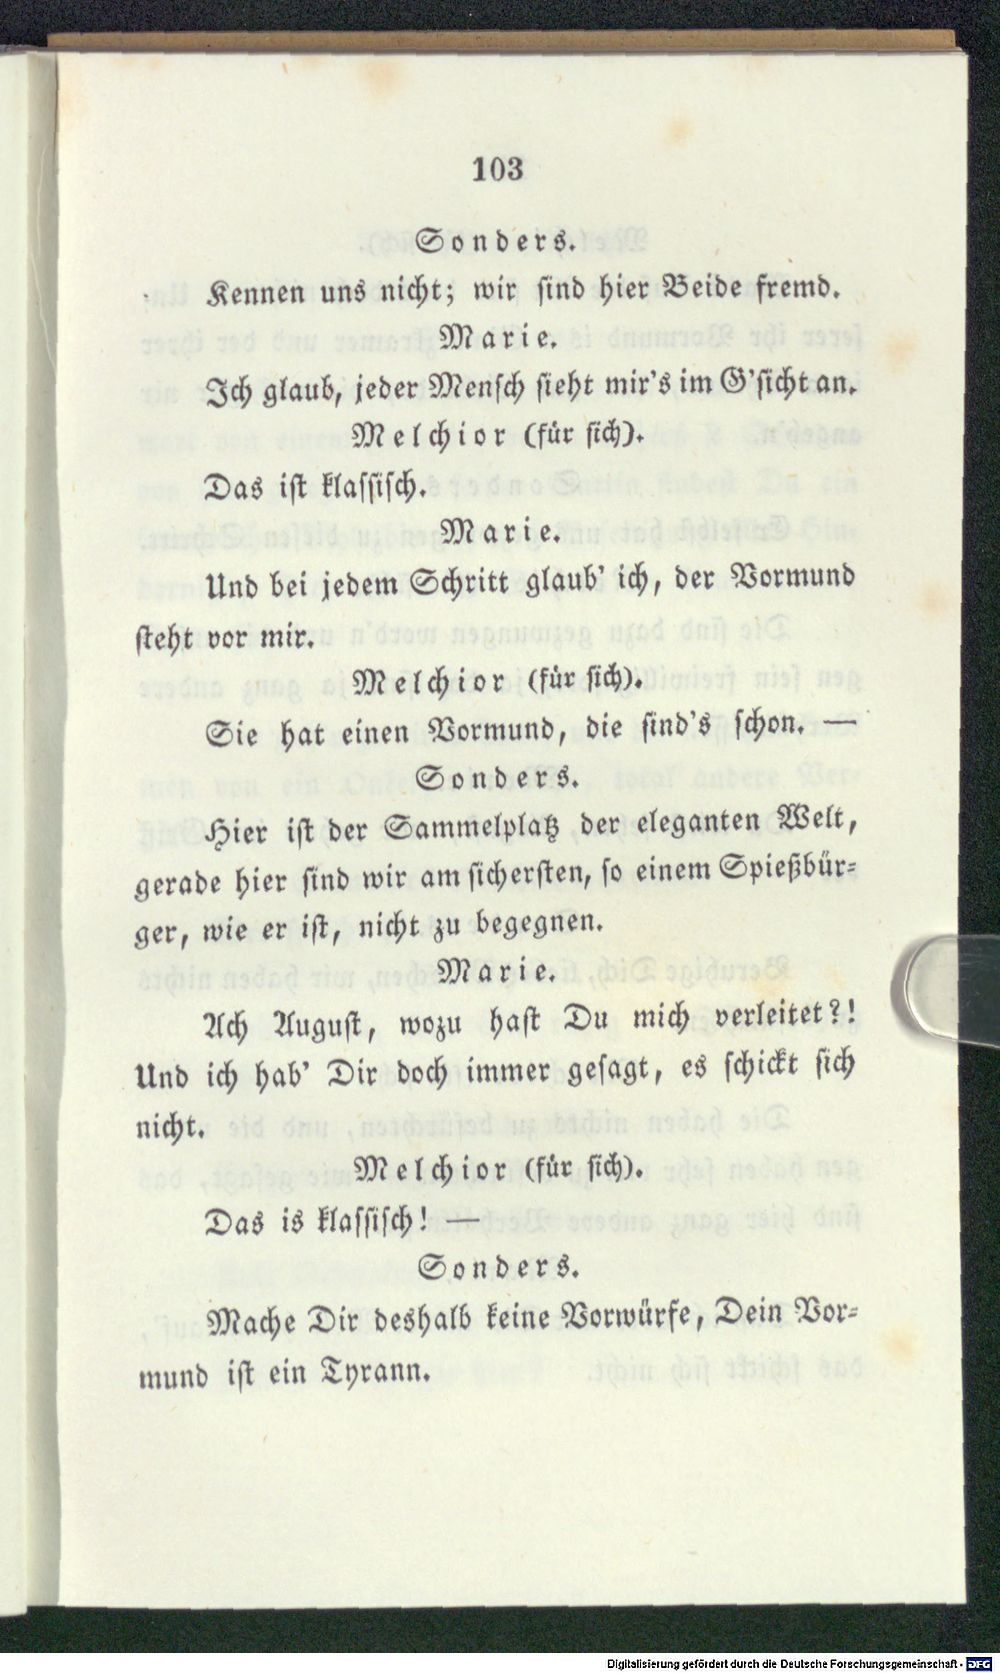 103
Sonders.
Kennen uns nicht; wir sind hier Beide fremd.
Marie.
Ich glaub, jeder Mensch sieht mir's im G'sicht an.
Melchior (für sich).
Das ist klassisch.
Marie.
Und bei jedem Schritt glaub' ich, der Vormund
steht vor mir.
Melchior (für sich).
Sie hat einen Vormund, die sind's schon. —
Sonders.
Hier ist der Sammelplatz der eleganten Welt,
gerade hier sind wir am sichersten, so einem Spießbür-
ger, wie er ist, nicht zu begegnen.
Marie.
Ach August, wozu hast Du mich verleitet?!
Und ich hab' Dir doch immer gesagt, es schickt sich
nicht.
Melchior (für sich).
Das is klassisch! —
Sonders.
Mache Dir deshalb keine Vorwürfe, Dein Vor-
mund ist ein Tyrann.
Digitalisierung gefördert durch die Deutsche Forschungsgemeinschaft - DFG